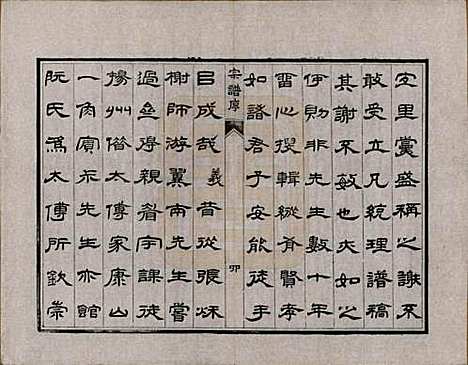 里黨盛稱之謝不
敢受立凡統理譜稿
其謝不敏也夫如之
何則非先生數十年
留心搜輯縱有賢孝
如諸君子安能徒手
宗譜序
㠯成哉義昔從張
榭師游翼南先生嘗
過無得親眉宇課徒
揚州僑太傅家康山
一角寓示先生亦館
阮氏爲太傅所欽崇